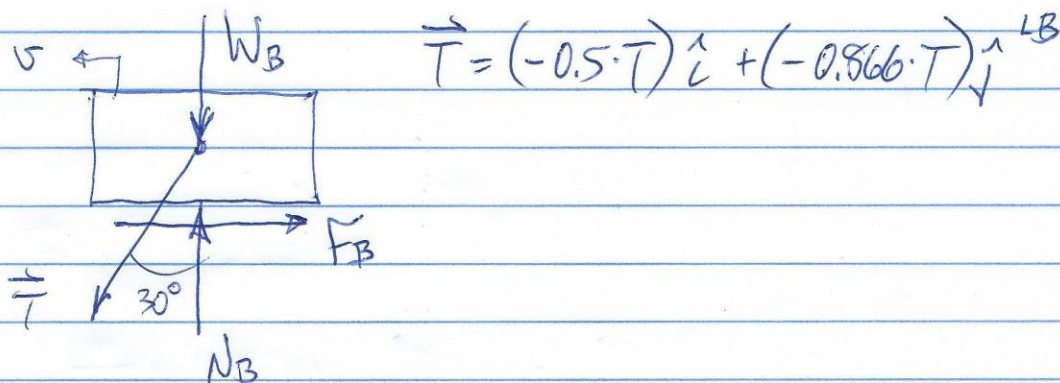 W_B
T⃗ = (-0.5·T) î + (-0.866·T) ĵ LB
v
F_B
T⃗
30°
N_B